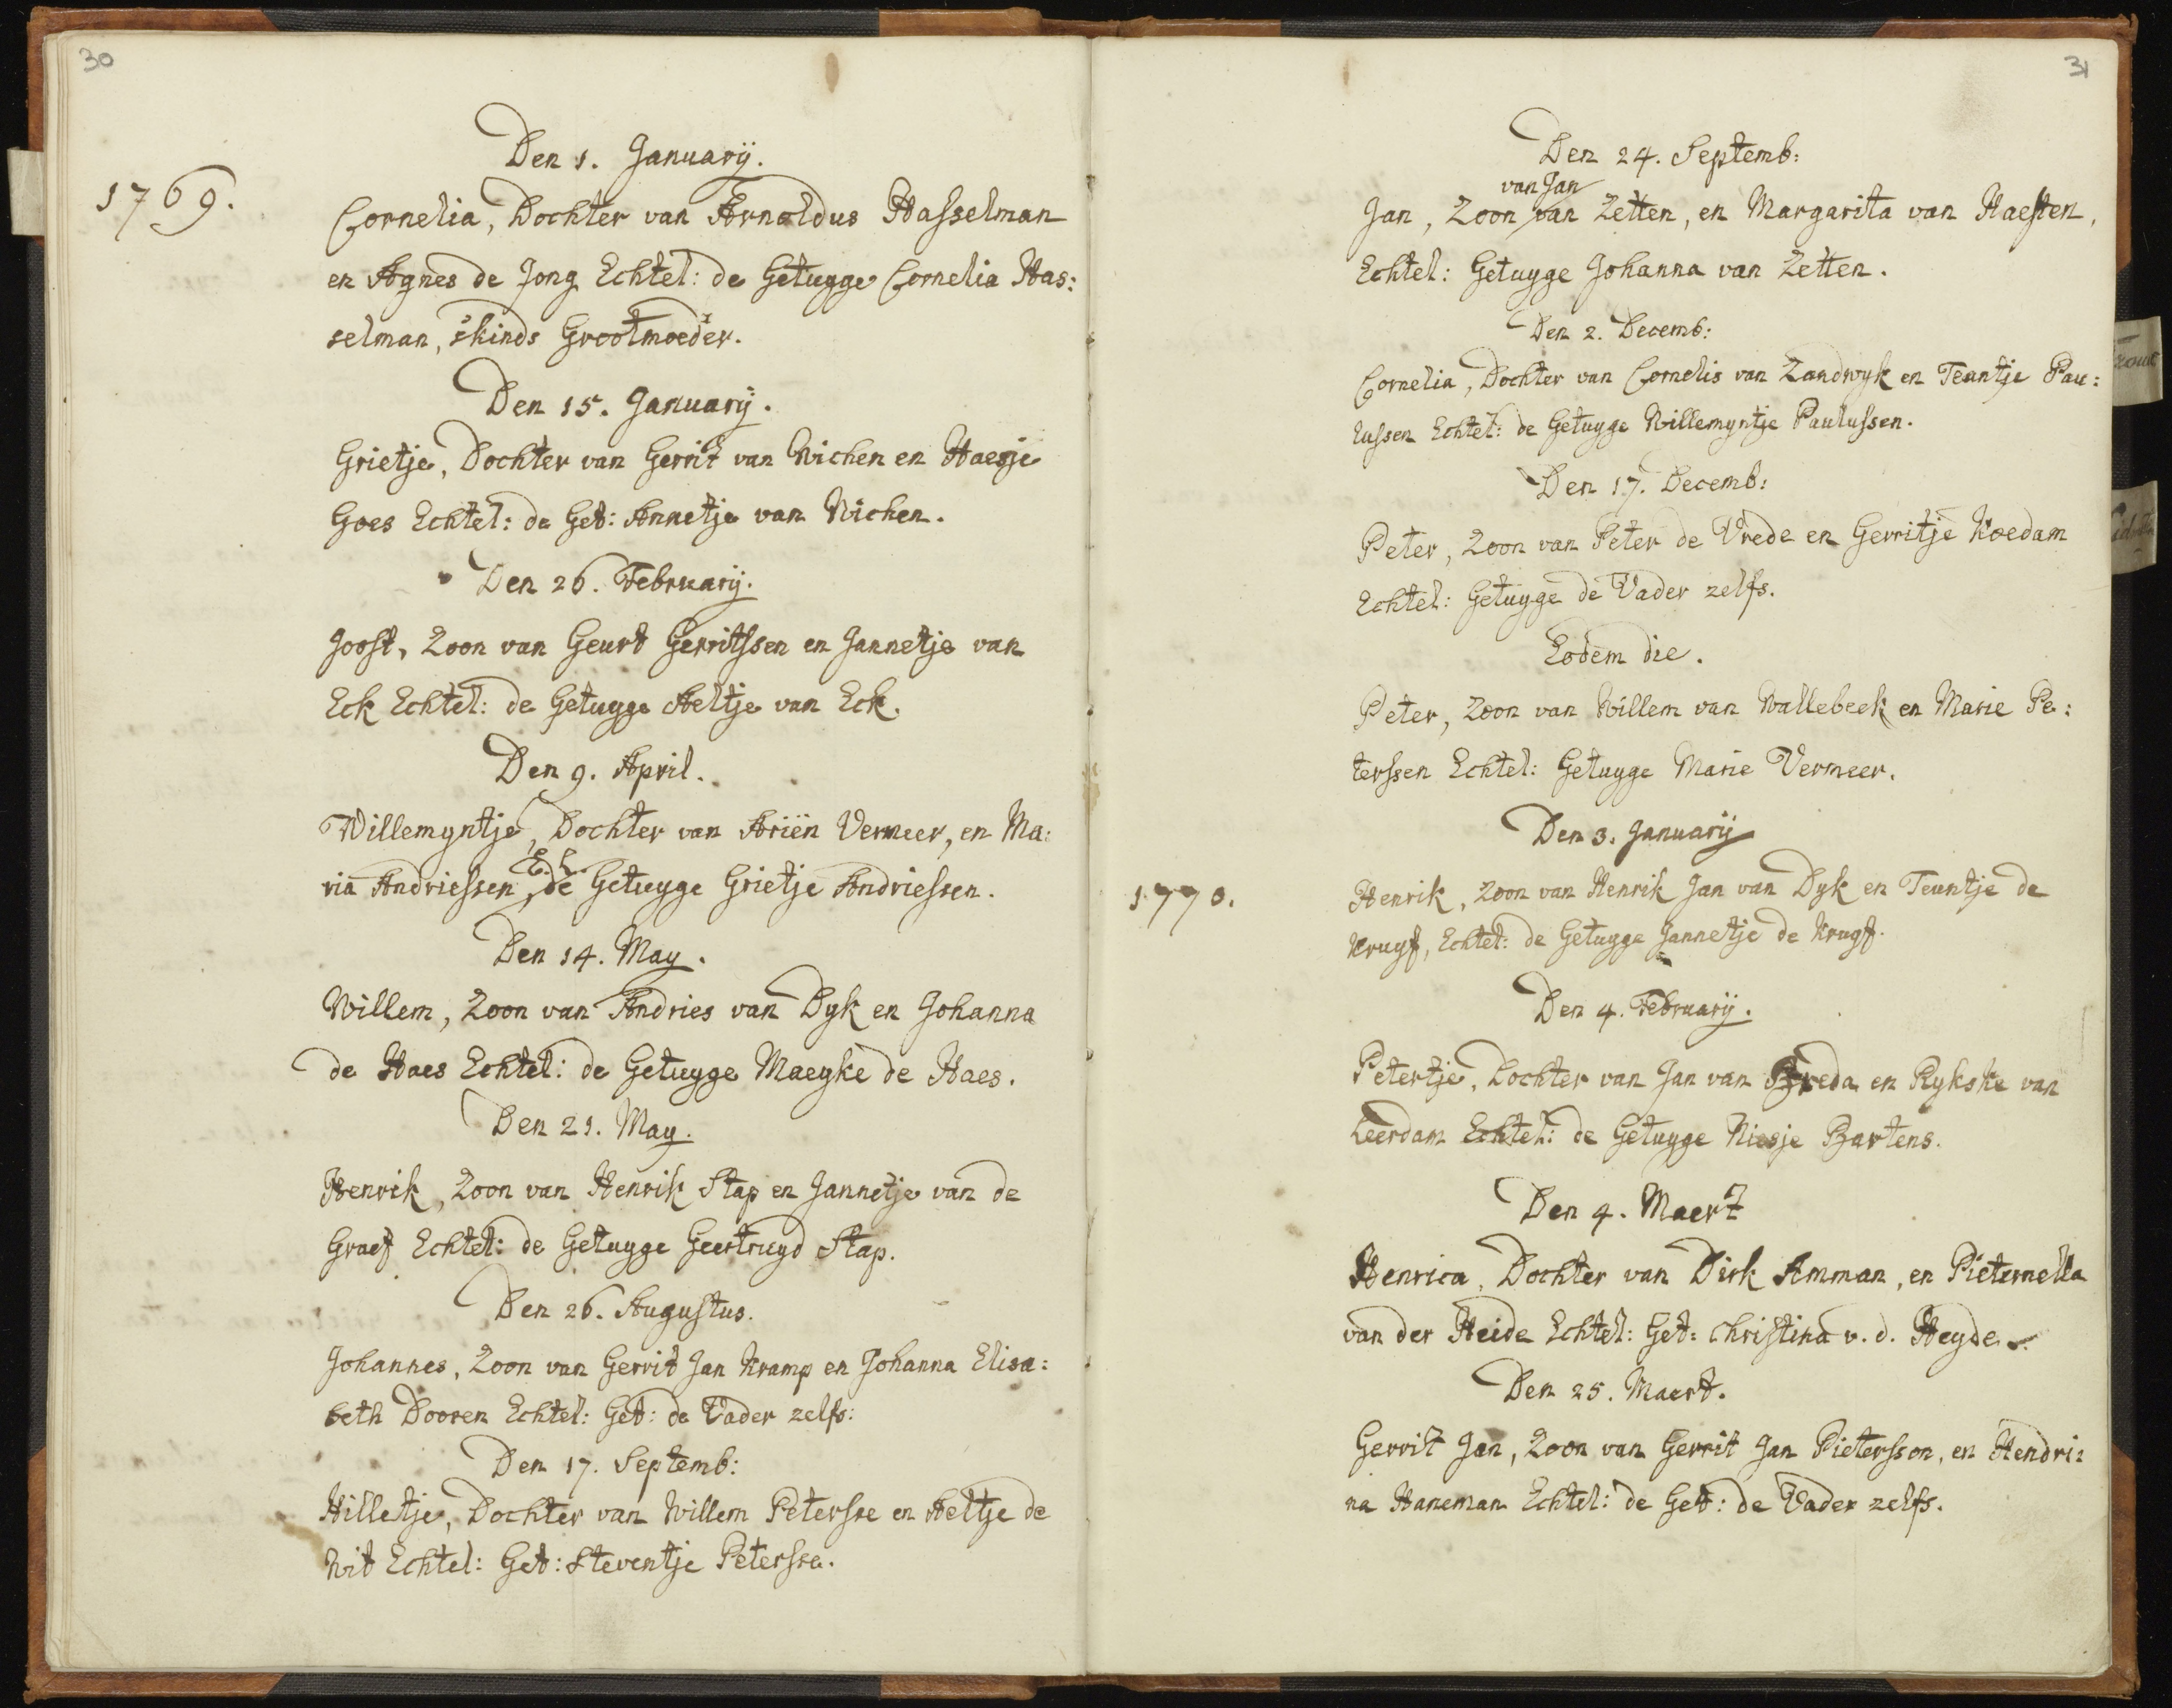 30
Den 1. Januarij.
1769.
Cornelia, Dochter van Arnoldus Hasselman
en Agnes de Jong Echtel: de Getuyge Cornelia Has:
selman, 's kinds Grootmoeder.
Den 15. Januarij.
Grietje, Dochter van Gerrit van Wichen en Haesje
Goes Echtel: de Get: Annetje van Wichen.
Den 26. Februarij.
Joost, Zoon van Geurt Gerritssen en Jannetje van
Eck Echtel: de Getuyge Aeltje van Eck.
Den 9. April.
Willemyntje, Dochter van Ariën Vermeer, en Ma:
E. L.
ria Andriessen, de Getuyge Grietje Andriessen.
Den 14. May.
Willem, Zoon van Andries van Dyk en Johanna
de Haes Echtel: de Getuyge Maeyke de Haes.
Den 21. May.
Henrik, Zoon van Henrik Stap en Jannetje van de
Graef Echtel: de Getuyge Geertruyd Stap.
Den 26. Augustus.
Johannes, Zoon van Gerrit Jan Kramp en Johanna Elisa:
beth Dooren Echtel: Get: de Vader zelfs:
Den 17. Septemb:
Hilletje, Dochter van Willem Peterssе en Aeltje de
Wit Echtel: Get: Steventje Petersse.
31
Den 24. Septemb:
van Jan
Jan, Zoon van Zetten, en Margarita van Haesten,
Echtel: Getuyge Johanna van Zetten.
Den 2. Decemb:
Cornelia, Dochter van Cornelis van Zandwyk en Teuntje Pau:
lussen Echtel: de Getuyge Willemyntje Paulussen.
Den 17. Decemb:
Peter, Zoon van Peter de Vrede en Gerritje Koedam
Echtel: Getuyge de Vader zelfs.
Eodem die.
Peter, Zoon van Willem van Wallebeek en Marie Pe:
terssen Echtel: Getuyge Marie Vermeer.
Den 3. Januarij
1770.
Henrik, Zoon van Henrik Jan van Dyk en Teuntje de
Kruyf, Echtel: de Getuyge Jannetje de Kruyf.
Den 4. Februarij.
Petertje, Dochter van Jan van Breda en Rykske van
Leerdam Echtel: de Getuyge Niesje Bartens.
Den 4. Maert
Henrica, Dochter van Dirk Amman, en Pieternella
van der Heide Echtel: Get: Christina v. d. Heyde.
Den 25. Maert.
Gerrit Jan, Zoon van Gerrit Jan Pietersson, en Hendri:
na Haneman Echtel: de Get: de Vader zelfs.